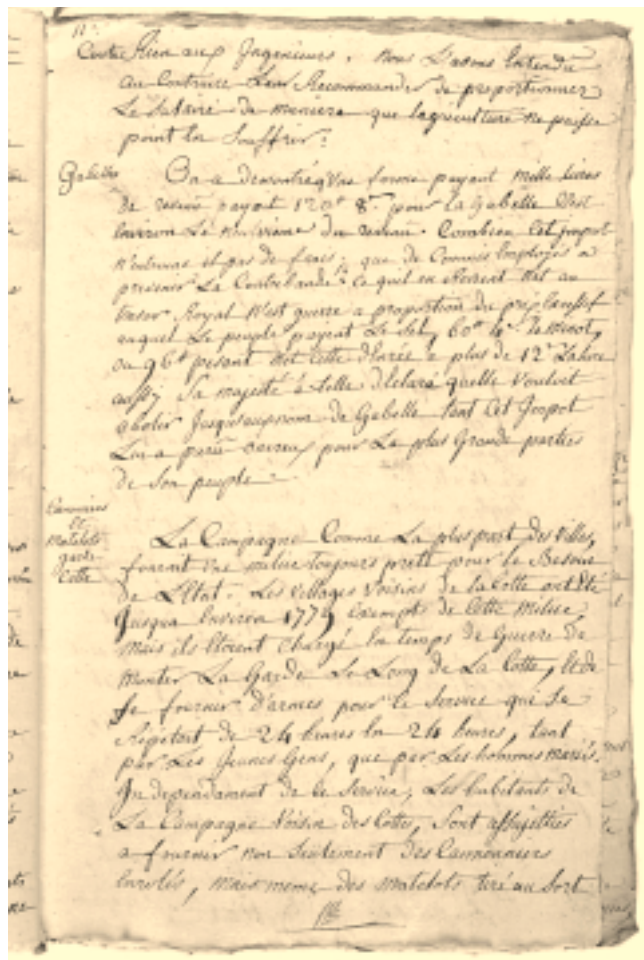 11
Coute Rien aux Ingenieurs. nous L'avons Entendu
au Contraire Leur Recommander de proportionner
Le Salaire de maniere que l'agriculture ne puisse
point En Souffrir.
Gabelles
On a demontré qu'une ferme payant mille livres
de revenu payoit 120# 8s pour la Gabelle C'est
Environ Le neuvieme du revenu. Combien Cet impot
n'entraine il pas de frais. que de Commis Employes a
prevenir La Contrebande. ce qui en Revient Net au
tresor Royal N'est guerre a proportion du prix Excessif
auquel Le peuple payoit Le Sel, 60# le minot,
ou 96# pesant met Cette dEnrée a plus de 12s La livre
aussy Sa majesté a t'elle dEclaré qu'elle Vouloit
abolir Jusqu'au nom de Gabelle tant Cet Impot
Lui a paru onereux pour La plus Grande partie
de Son peuple
Cannoniers
Et
Matelots
garde
Cotte
La Campagne Comme La plus part des Villes,
fournit une milice toujours prette pour le Besoin
de L'Etat. Les Villages Voisins de la Cotte ont Eté
Jusqua Environ 1779 Exempts de Cette Milice
mais ils Etoient Chargé En temps de Guerre de
Monter La Garde Le Long de La Cotte, Et de
Se fournir d'armes pour le Service qui Se
Repetoit de 24 heures En 24 heures, tant
par Les Jeunes Gens, que par Les hommes mariés.
Independament de Ce Service, Les habitants de
La Campagne Voisin des Cottes, Sont assujetties
a fournir non Seulement des Cannonniers
Enrolés, mais meme des matelots tiré au Sort